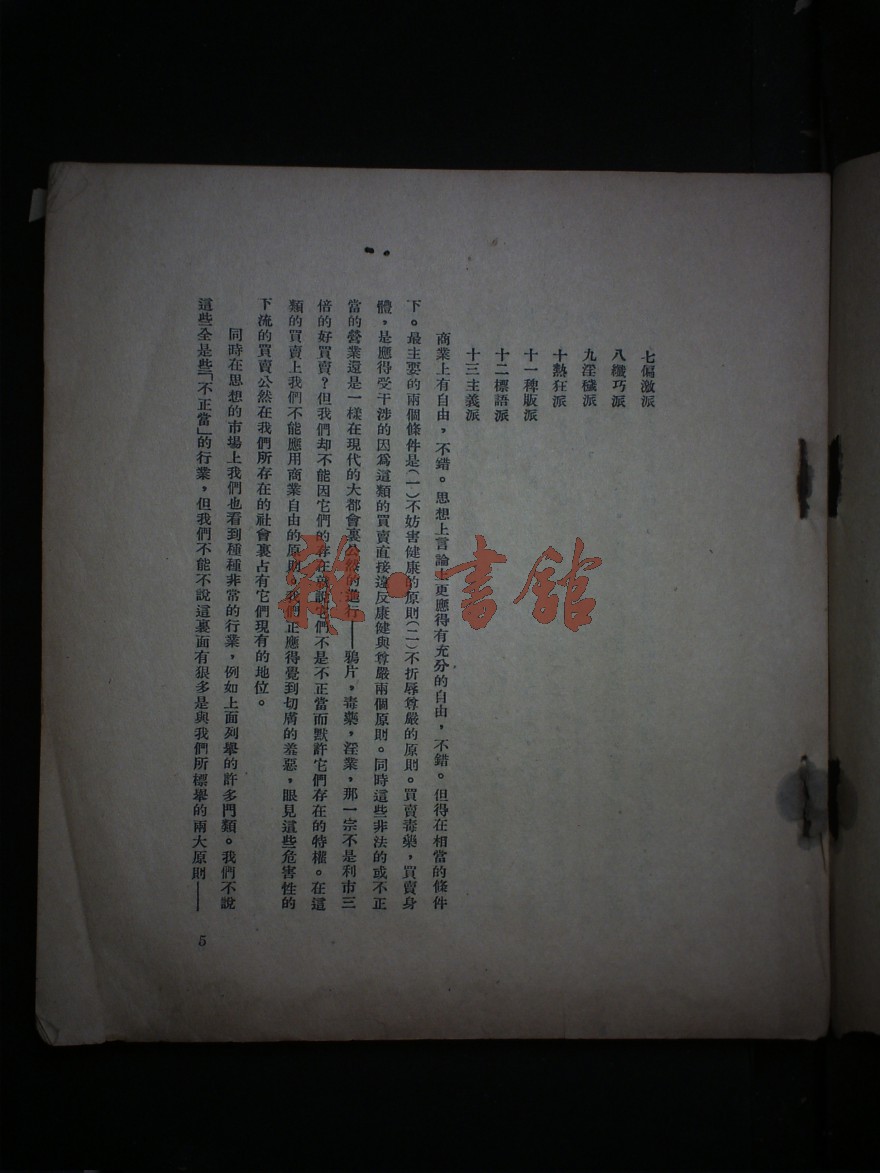 七偏激派
八纖巧派
九淫穢派
十熱狂派
十一稗販派
十二標語派
十三主義派
商業上有自由，不錯。思想上言論上更應得有充分的自由，不錯。但得在相當的條件
下。最主要的兩個條件是(一)不妨害健康的原則(二)不折辱尊嚴的原則。買賣毒藥，買賣身
體，是應得受干涉的因爲這類的買賣直接違反康健與尊嚴兩個原則。同時這些非法的或不正
當的營業還是一樣在現代的大都會裏公然的進行——鴉片，毒藥，淫業，那一宗不是利市三
倍的好買賣？但我們却不能因它們的存在就說它們不是不正當而默許它們存在的特權。在這
類的買賣上我們不能應用商業自由的原則。我們正應得覺到切膚的羞惡，眼見這些危害性的
下流的買賣公然在我們所存在的社會裏占有它們現有的地位。
同時在思想的市場上我們也看到種種非常的行業，例如上面列舉的許多門類。我們不說
這些全是些「不正當」的行業，但我們不能不說這裏面有狠多是與我們所標舉的兩大原則——
5
雜·書館